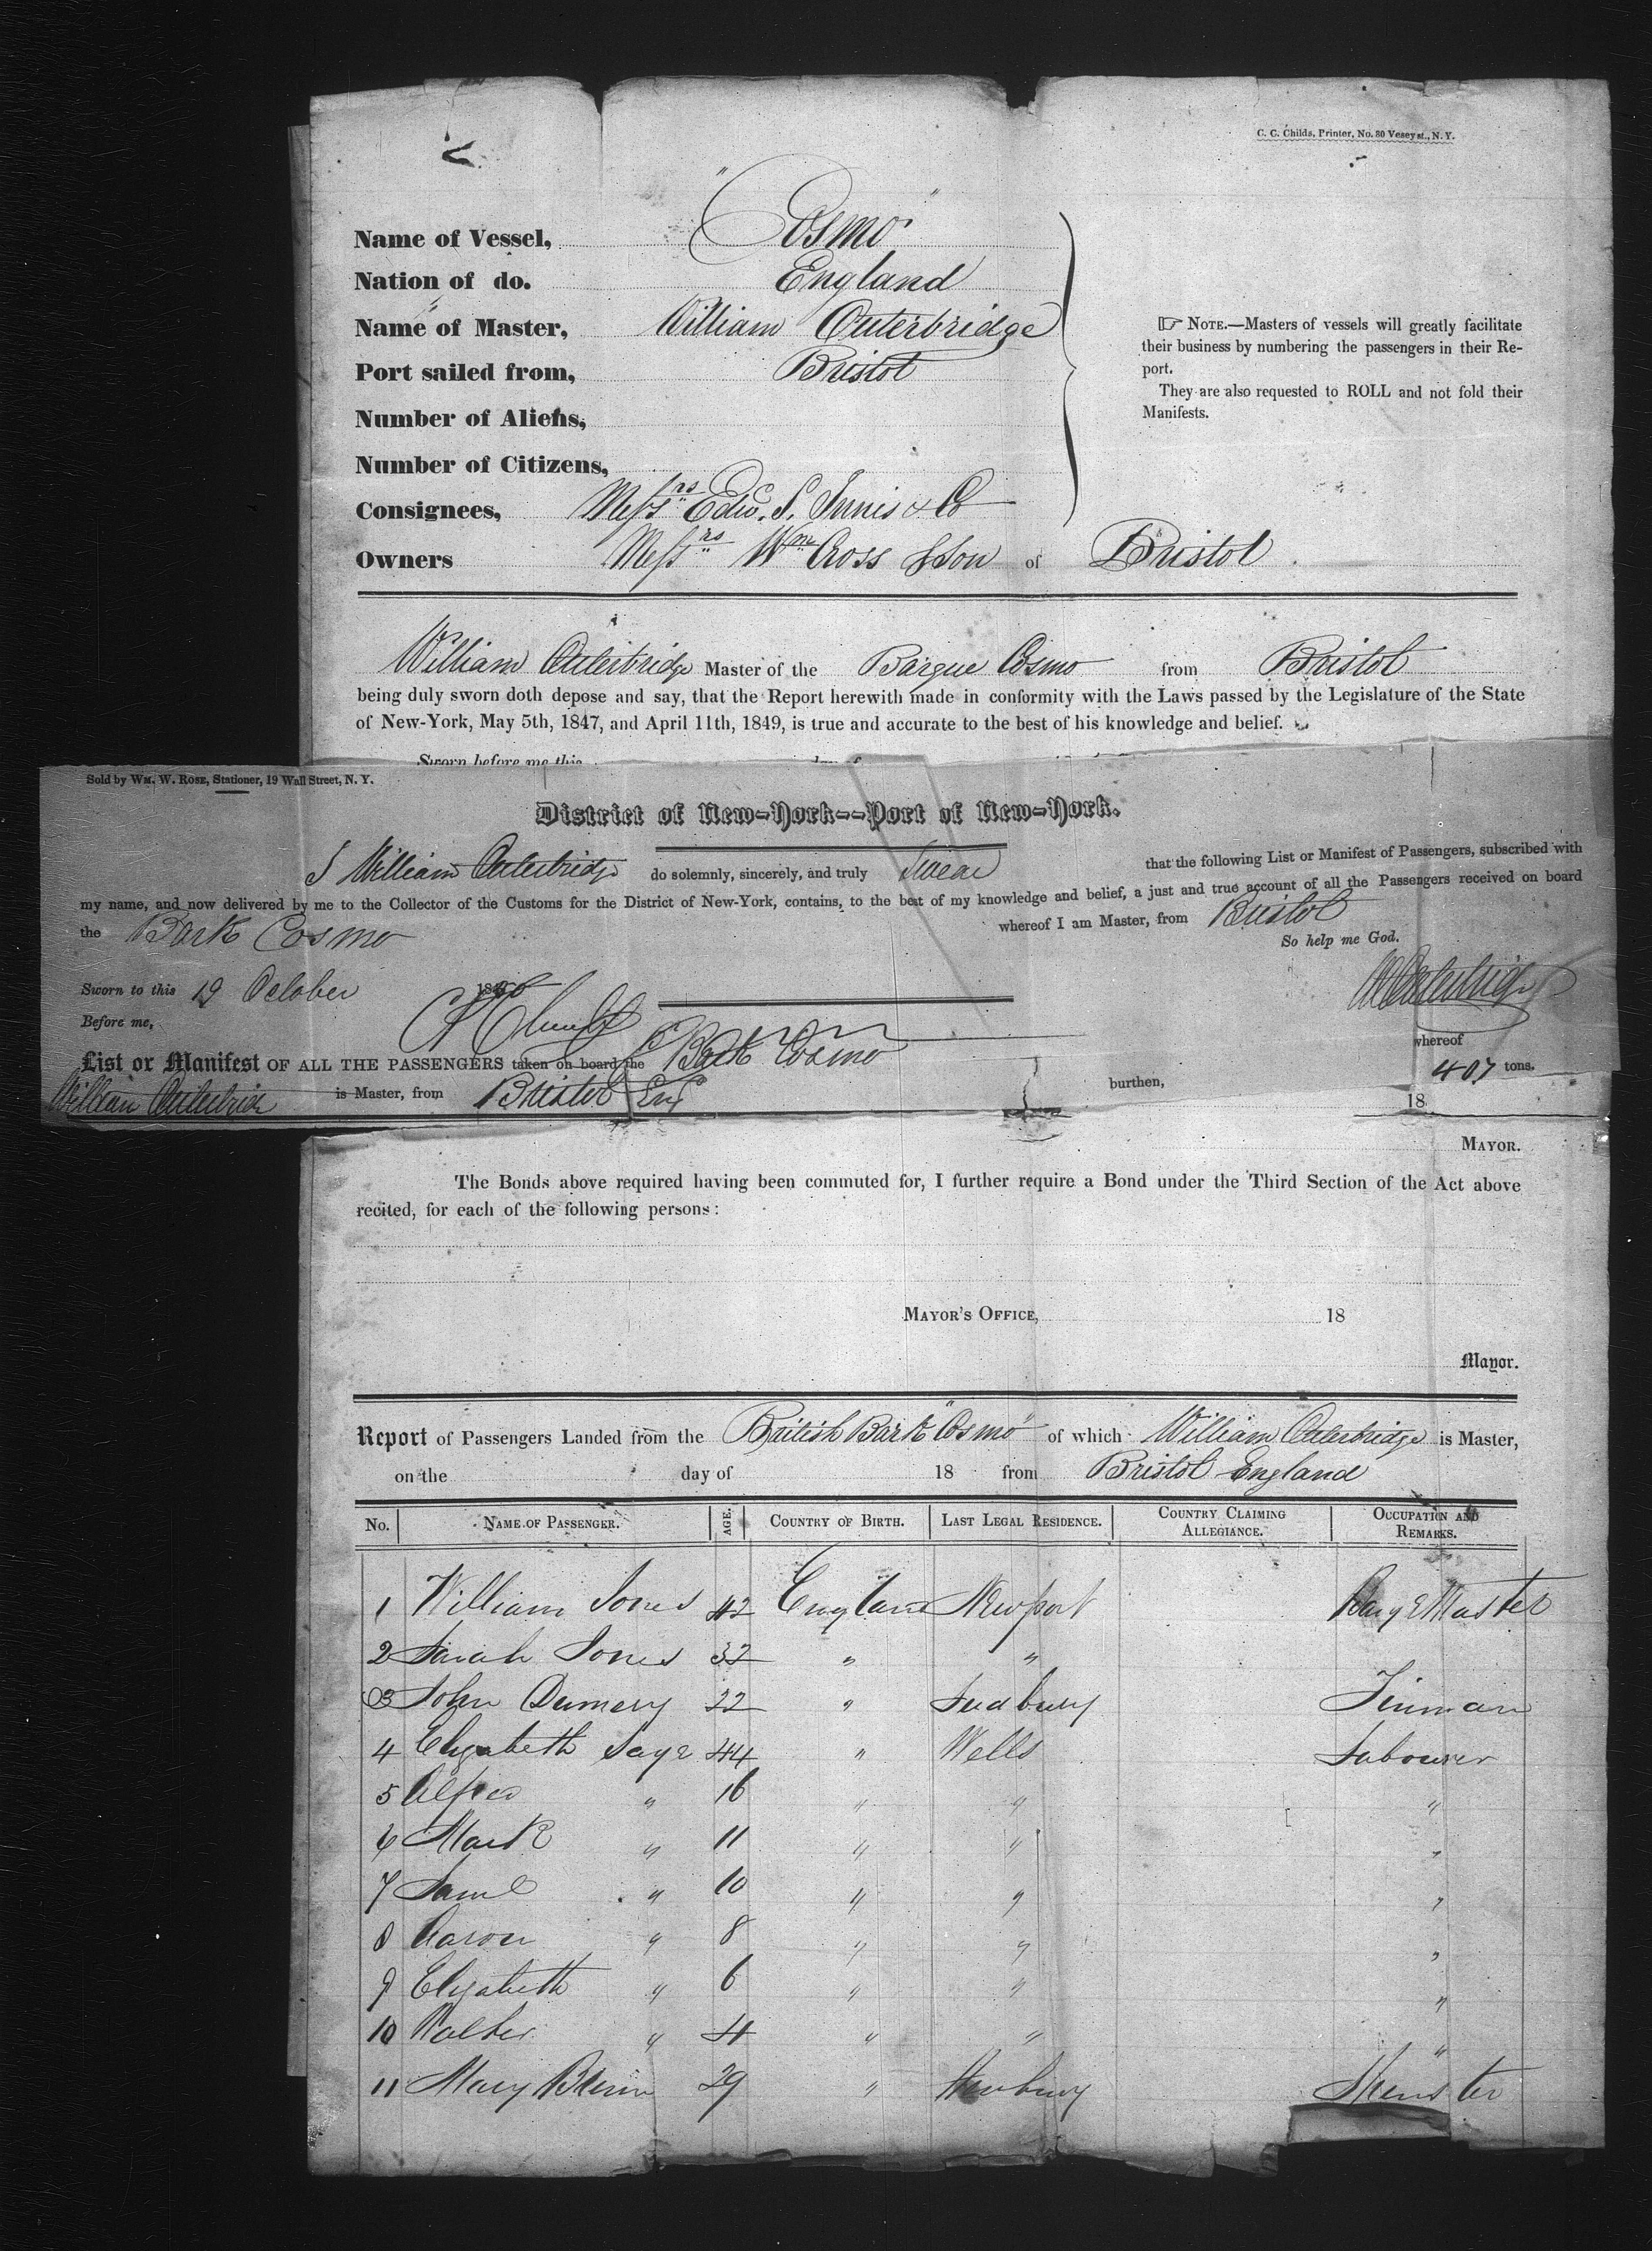 C. C. Childs, Printer, No. 80 Vesey st., N. Y.
Name of Vessel, "Cosmo"
Nation of do. England
Name of Master, William Outerbridge
Port sailed from, Bristol
Number of Aliens,
Number of Citizens,
Consignees, Messrs Edw. S. Innis & Co
Owners Messrs Wm Cross & Son of Bristol
☞ NOTE.—Masters of vessels will greatly facilitate
their business by numbering the passengers in their Re-
port.
They are also requested to ROLL and not fold their
Manifests.
William Outerbridge Master of the Barque Cosmo from Bristol
being duly sworn doth depose and say, that the Report herewith made in conformity with the Laws passed by the Legislature of the State
of New-York, May 5th, 1847, and April 11th, 1849, is true and accurate to the best of his knowledge and belief.
Sworn before me this day of
Sold by WM. W. ROSE, Stationer, 19 Wall Street, N. Y.
District of New-York--Port of New-York.
I William Outerbridge do solemnly, sincerely, and truly swear that the following List or Manifest of Passengers, subscribed with
my name, and now delivered by me to the Collector of the Customs for the District of New-York, contains, to the best of my knowledge and belief, a just and true account of all the Passengers received on board
the Bark Cosmo whereof I am Master, from Bristol
So help me God.
Sworn to this 19 October
W Outerbridge
Before me,
List or Manifest OF ALL THE PASSENGERS taken on board the Bark Cosmo whereof
William Outerbridge is Master, from Bristol Eng burthen, 407 tons.
18
MAYOR.
The Bonds above required having been commuted for, I further require a Bond under the Third Section of the Act above
recited, for each of the following persons:
MAYOR'S OFFICE, 18
Mayor.
Report of Passengers Landed from the British Bark "Cosmo" of which William Outerbridge is Master,
on the day of 18 from Bristol England
No. NAME OF PASSENGER. AGE. COUNTRY OF BIRTH. LAST LEGAL RESIDENCE. COUNTRY CLAIMING ALLEGIANCE. OCCUPATION AND REMARKS.
1 William Jones 42 England Newport Barge Master
2 Sarah Jones 32 " "
3 John Dumery 22 " Sudbury Tinman
4 Elizabeth Saye 44 " Wells Labourer
5 Alfred " 16 " " "
6 Mark " 11 " " "
7 Saml " 10 " " "
8 Aaron " 8 " " "
9 Elizabeth " 6 " " "
10 Walter " 4 " " "
11 Mary 29 " Newbury